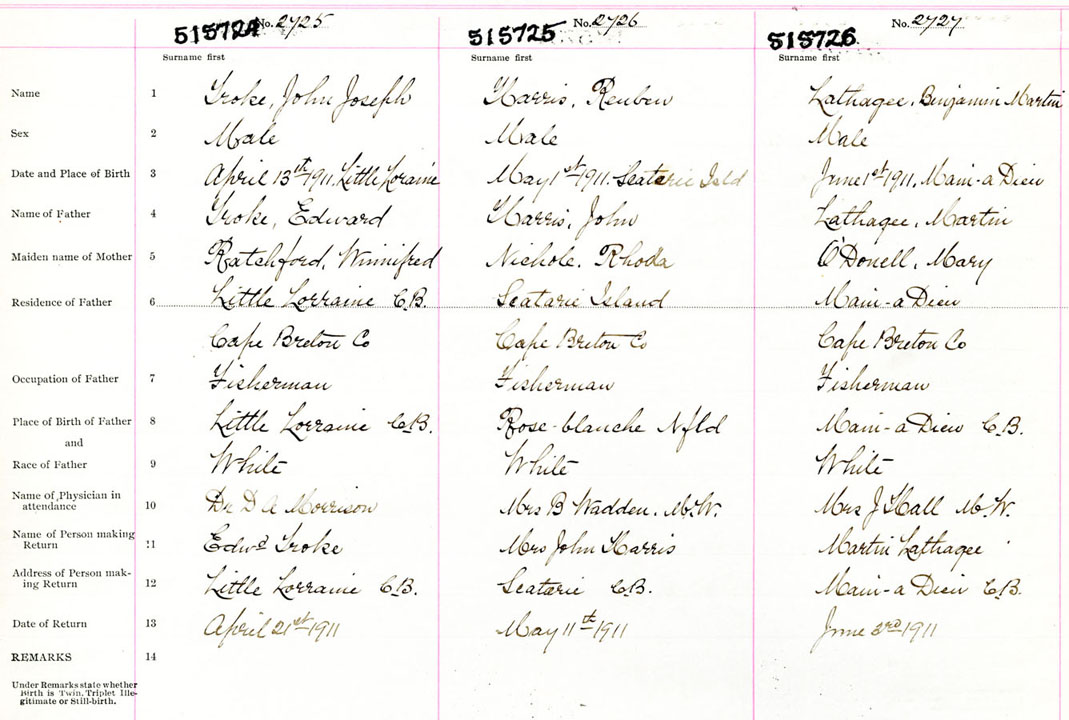 515724 No. 2725 515725 No. 2726 515726 No. 2727
Surname first Surname first Surname first
Name 1 Troke, John Joseph Harris, Reuben Lathagee, Benjamin Martin
Sex 2 Male Male Male
Date and Place of Birth 3 April 13th 1911, Little Loraine May 1st 1911. Scatarie Isld June 1st 1911, Main-a Dieu
Name of Father 4 Troke, Edward Harris, John Lathagee, Martin
Maiden name of Mother 5 Ratchford, Winnifred Nichole. Rhoda O'Donell, Mary
Residence of Father 6 Little Lorraine C.B. Scatarie Island Main-a Dieu
Cape Breton Co Cape Breton Co Cape Breton Co
Occupation of Father 7 Fisherman Fisherman Fisherman
Place of Birth of Father 8 Little Lorraine C.B. Rose-blanche Nfld Main-a Dieu C.B.
and
Race of Father 9 White White White
Name of Physician in
attendance 10 Dr D A Morrison Mrs B Wadden. M.W. Mrs J Hall M.W.
Name of Person making
Return 11 Edwd Troke Mrs John Harris Martin Lathagee
Address of Person mak-
ing Return 12 Little Lorraine C.B. Scatarie C.B. Main-a Dieu C.B.
Date of Return 13 April 21st 1911 May 11th 1911 June 3rd 1911
REMARKS 14
Under Remarks state whether
Birth is Twin, Triplet Ille-
gitimate or Still-birth.